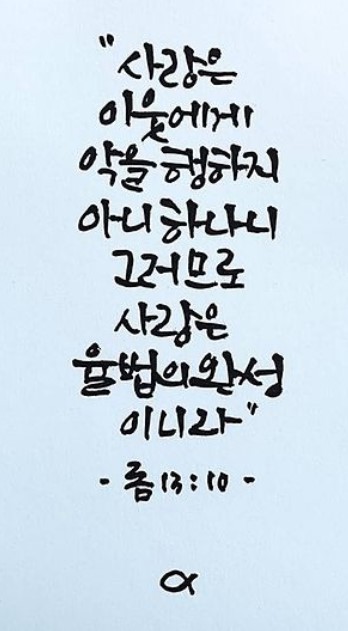 "사랑은
이웃에게
악을 행하지
아니하나니
그러므로
사랑은
율법의 완성
이니라"
- 롬 13:10 -
α